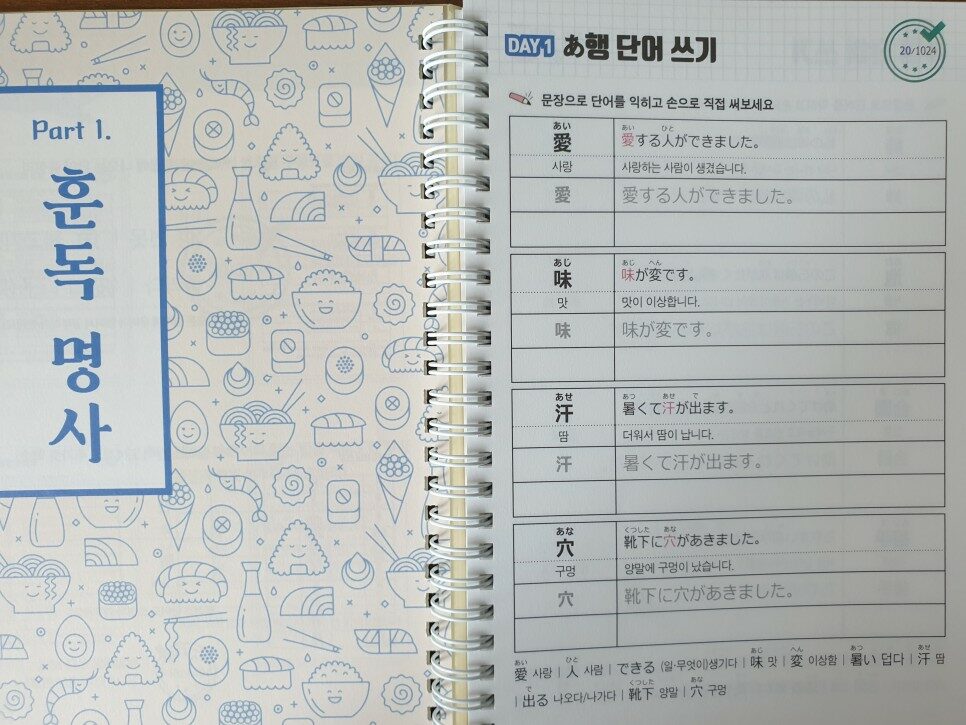 Part 1.
훈독 명사
DAY 1 あ행 단어 쓰기
20/1024
문장으로 단어를 익히고 손으로 직접 써보세요
あい あい ひと
愛 愛する人ができました。
사랑 사랑하는 사람이 생겼습니다.
愛 愛する人ができました。
あじ あじ へん
味 味が変です。
맛 맛이 이상합니다.
味 味が変です。
あせ あつ あせ で
汗 暑くて汗が出ます。
땀 더워서 땀이 납니다.
汗 暑くて汗が出ます。
あな くつした あな
穴 靴下に穴があきました。
구멍 양말에 구멍이 났습니다.
穴 靴下に穴があきました。
あい ひと あじ へん あつ あせ
愛 사랑 | 人 사람 | できる (일·무엇이)생기다 | 味 맛 | 変 이상함 | 暑い 덥다 | 汗 땀
で くつした あな
| 出る 나오다/나가다 | 靴下 양말 | 穴 구멍